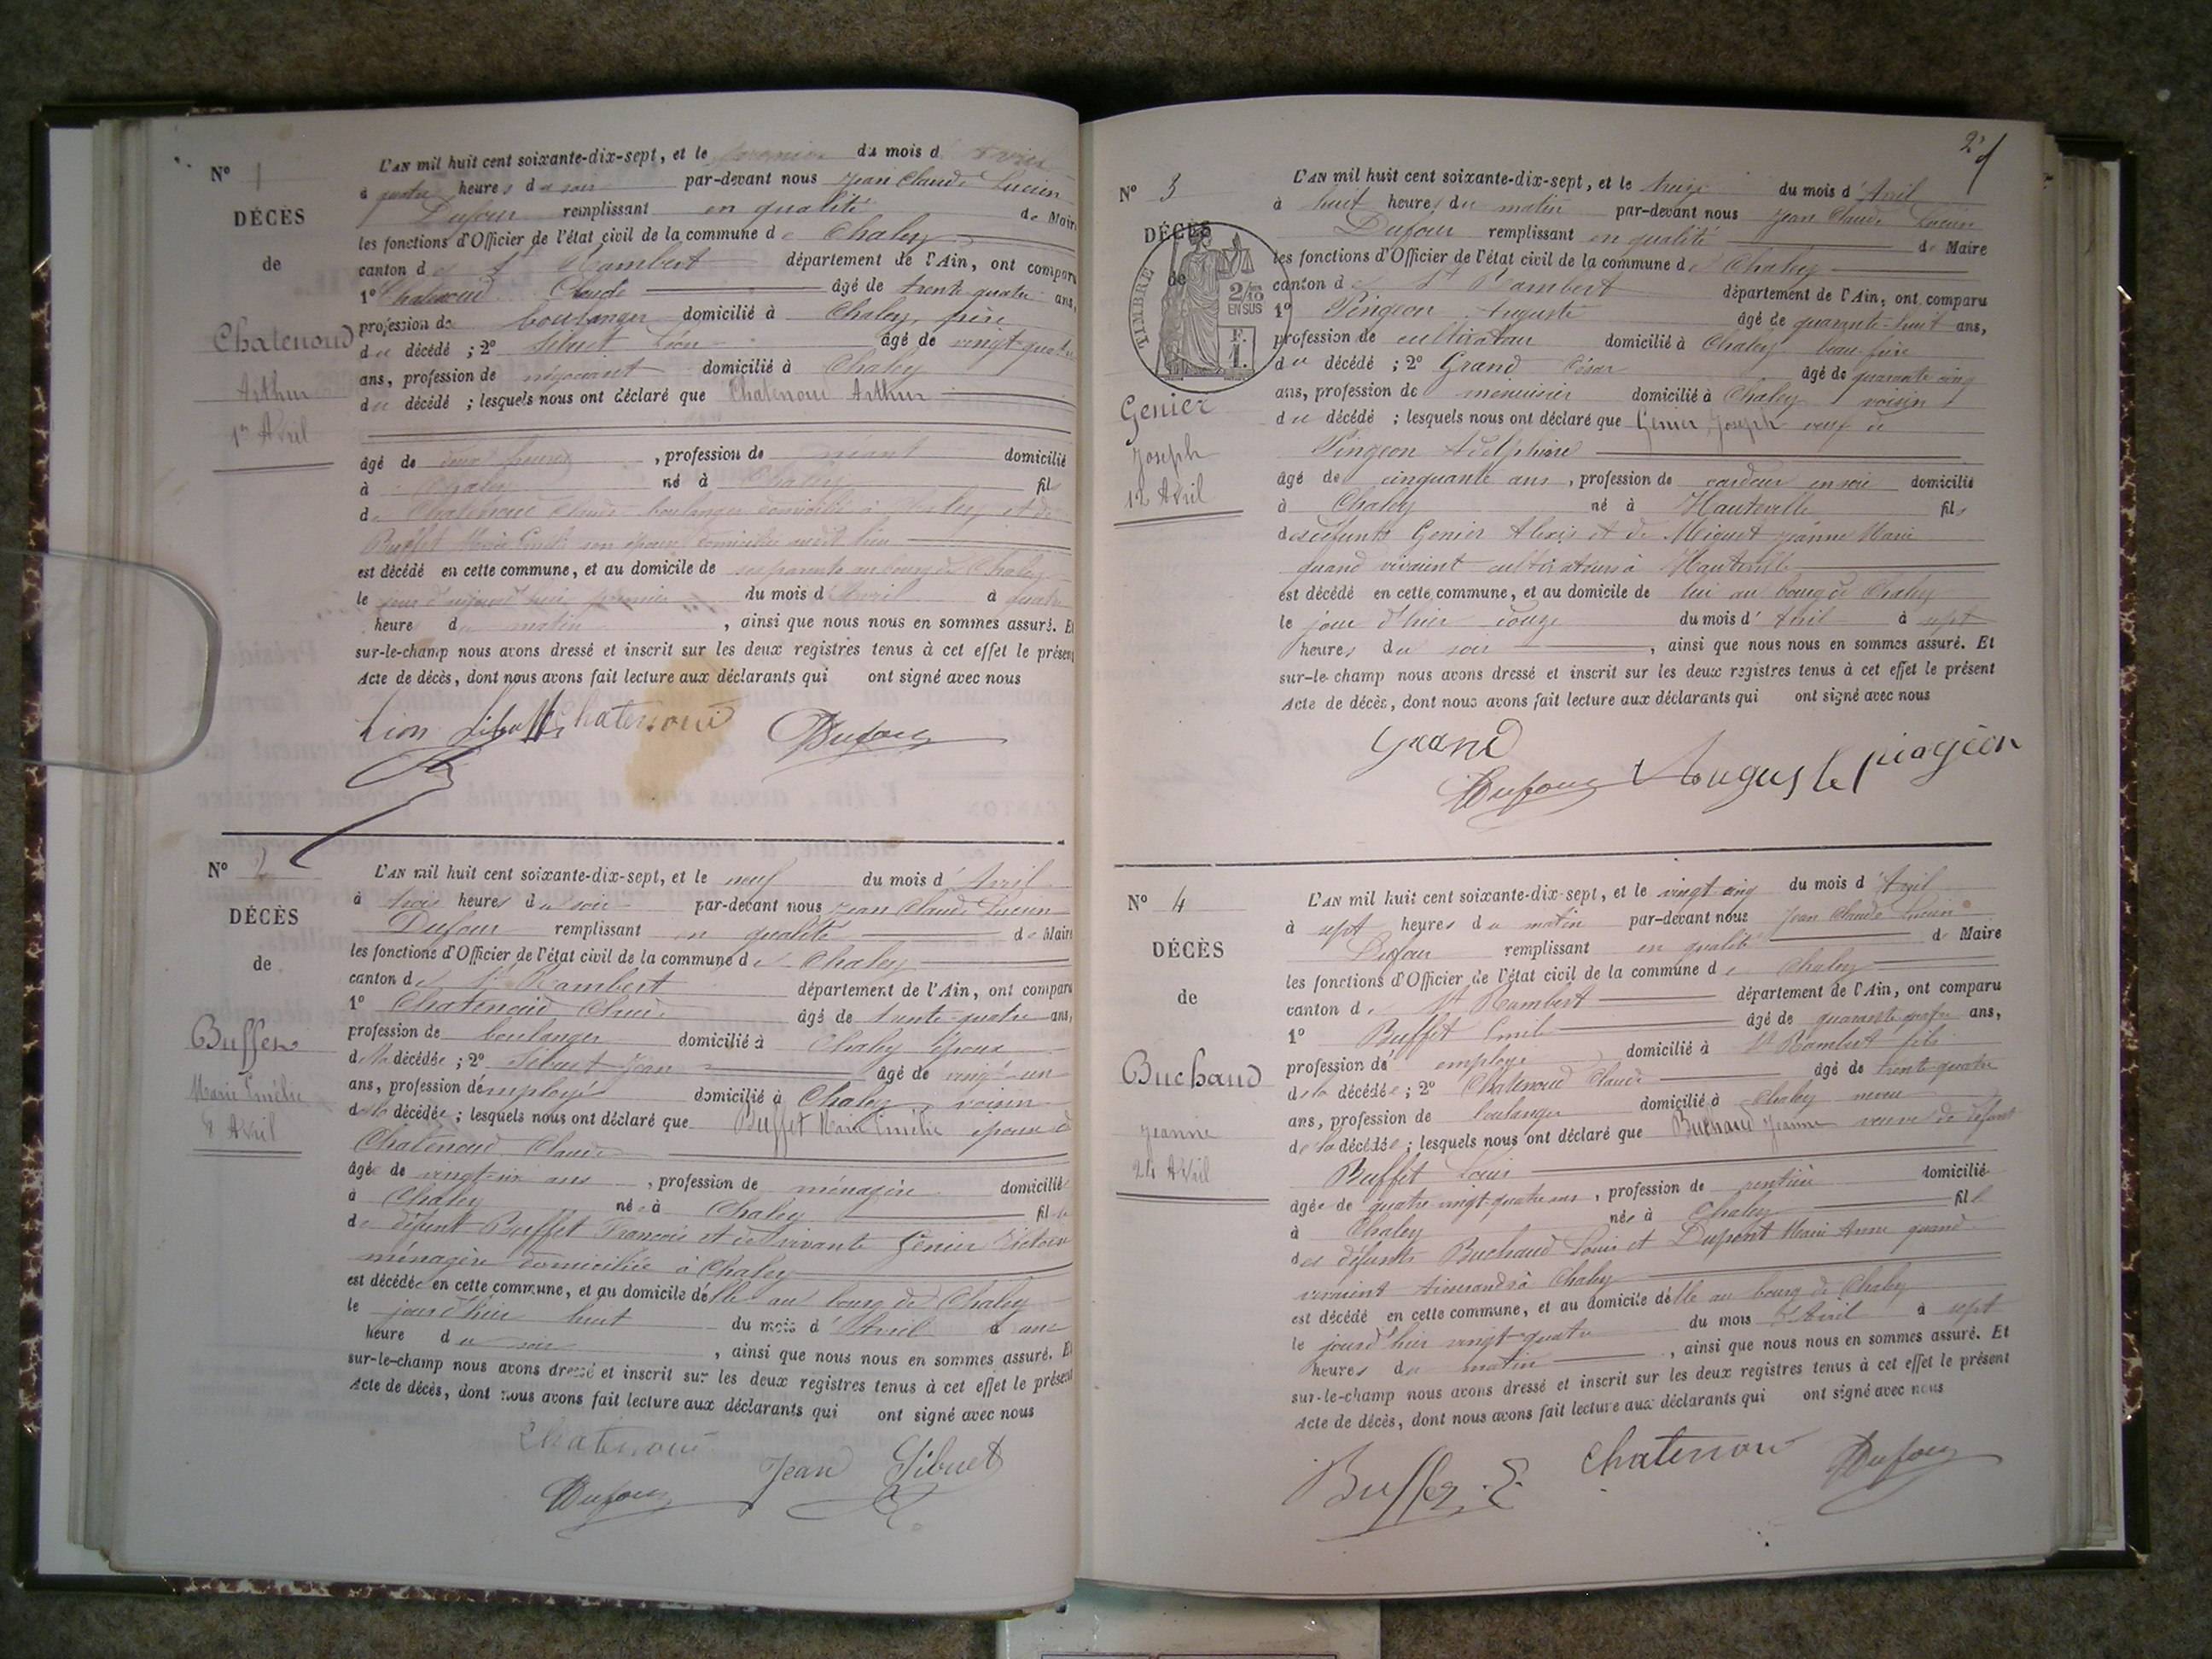 N° 1
DÉCÈS
de
Chatenoud
Arthur
1er Avril
L'AN mil huit cent soixante-dix-sept, et le premier du mois d'Avril
à quatre heures du soir par-devant nous Jean Claude Lucien
Dufour remplissant en qualité de Maire
les fonctions d'Officier de l'état civil de la commune de Chaley
canton de St Rambert département de l'Ain, ont comparu
1° Chatenoud Claude âgé de trente quatre ans,
profession de boulanger domicilié à Chaley, père
du décédé ; 2° Sibuet Léon âgé de vingt-quatre
ans, profession de négociant domicilié à Chaley
du décédé ; lesquels nous ont déclaré que Chatenoud Arthur
âgé de deux heures, profession de néant domicilié
à Chaley né à Chaley fils
de Chatenoud Claude boulanger domicilié à Chaley et de
Buffet Marie Emélie son épouse domiciliée audit lieu
est décédé en cette commune, et au domicile de ses parents au bourg de Chaley
le jour d'aujourd'hui premier du mois d'Avril à quatre
heure du matin, ainsi que nous nous en sommes assuré. Et
sur-le-champ nous avons dressé et inscrit sur les deux registres tenus à cet effet le présent
Acte de décès, dont nous avons fait lecture aux déclarants qui ont signé avec nous
Léon Sibuet Chatenoud Dufour
N° 2
DÉCÈS
de
Buffet
Marie Emélie
8 Avril
L'AN mil huit cent soixante-dix-sept, et le neuf du mois d'Avril
à trois heures du soir par-devant nous Jean Claude Lucien
Dufour remplissant en qualité de Maire
les fonctions d'Officier de l'état civil de la commune de Chaley
canton de St Rambert département de l'Ain, ont comparu
1° Chatenoud Claude âgé de trente-quatre ans,
profession de boulanger domicilié à Chaley époux
de la décédée ; 2° Sibuet Jean âgé de vingt-un
ans, profession d'employé domicilié à Chaley voisin
de la décédée ; lesquels nous ont déclaré que Buffet Marie Emélie épouse de
Chatenoud Claude
âgée de ans, profession de ménagère domiciliée
à Chaley née à Chaley fille
de défunt Buffet François et de vivante Genier Victoire
ménagère domiciliée à Chaley
est décédée en cette commune, et au domicile d'elle au bourg de Chaley
le jour d'hier huit du mois d'Avril à une
heure du soir, ainsi que nous nous en sommes assuré. Et
sur-le-champ nous avons dressé et inscrit sur les deux registres tenus à cet effet le présent
Acte de décès, dont nous avons fait lecture aux déclarants qui ont signé avec nous
Chatenoud
Dufour Jean Sibuet
2
N° 3
DÉCÈS
de
TIMBRE
2/10
EN SUS
F.
1.
Genier
Joseph
12 Avril
L'AN mil huit cent soixante-dix-sept, et le treize du mois d'Avril
à huit heures du matin par-devant nous Jean Claude Lucien
Dufour remplissant en qualité de Maire
les fonctions d'Officier de l'état civil de la commune de Chaley
canton de St Rambert département de l'Ain, ont comparu
1° Pingeon Auguste âgé de quarante-huit ans,
profession de cultivateur domicilié à Chaley beau-frère
du décédé ; 2° Grand César âgé de quarante cinq
ans, profession de menuisier domicilié à Chaley voisin
du décédé ; lesquels nous ont déclaré que Genier Joseph veuf de
Pingeon Adelphine
âgé de cinquante ans, profession de cardeur en soie domicilié
à Chaley né à Hauteville fils
des défunts Genier Alexis et de Meiguet Jeanne Marie
quand vivaient cultivateurs à Hauteville
est décédé en cette commune, et au domicile de lui au bourg de Chaley
le jour d'hier douze du mois d'Avril à sept
heures du soir, ainsi que nous nous en sommes assuré. Et
sur-le-champ nous avons dressé et inscrit sur les deux registres tenus à cet effet le présent
Acte de décès, dont nous avons fait lecture aux déclarants qui ont signé avec nous
Grand
Dufour Auguste pingeon
N° 4
DÉCÈS
de
Buchaud
Jeanne
24 Avril
L'AN mil huit cent soixante-dix-sept, et le vingt cinq du mois d'Avril
à sept heures du matin par-devant nous Jean Claude Lucien
Dufour remplissant en qualité de Maire
les fonctions d'Officier de l'état civil de la commune de Chaley
canton de St Rambert département de l'Ain, ont comparu
1° Buffet Emile âgé de quarante quatre ans,
profession d'employé domicilié à St Rambert fils
de la décédée ; 2° Chatenoud Claude âgé de trente-quatre
ans, profession de boulanger domicilié à Chaley neveu
de la décédée ; lesquels nous ont déclaré que Buchaud Jeanne veuve de défunt
Buffet Louis
âgée de quatre vingt-quatre ans, profession de rentière domicilié
à Chaley née à Chaley fille
des défunts Buchaud Louis et Dupont Marie Anne quand
vivaient tisserands à Chaley
est décédé en cette commune, et au domicile d'elle au bourg de Chaley
le jour d'hier vingt-quatre du mois d'Avril à sept
heures du matin, ainsi que nous nous en sommes assuré. Et
sur-le-champ nous avons dressé et inscrit sur les deux registres tenus à cet effet le présent
Acte de décès, dont nous avons fait lecture aux déclarants qui ont signé avec nous
Buffet E Chatenoud Dufour